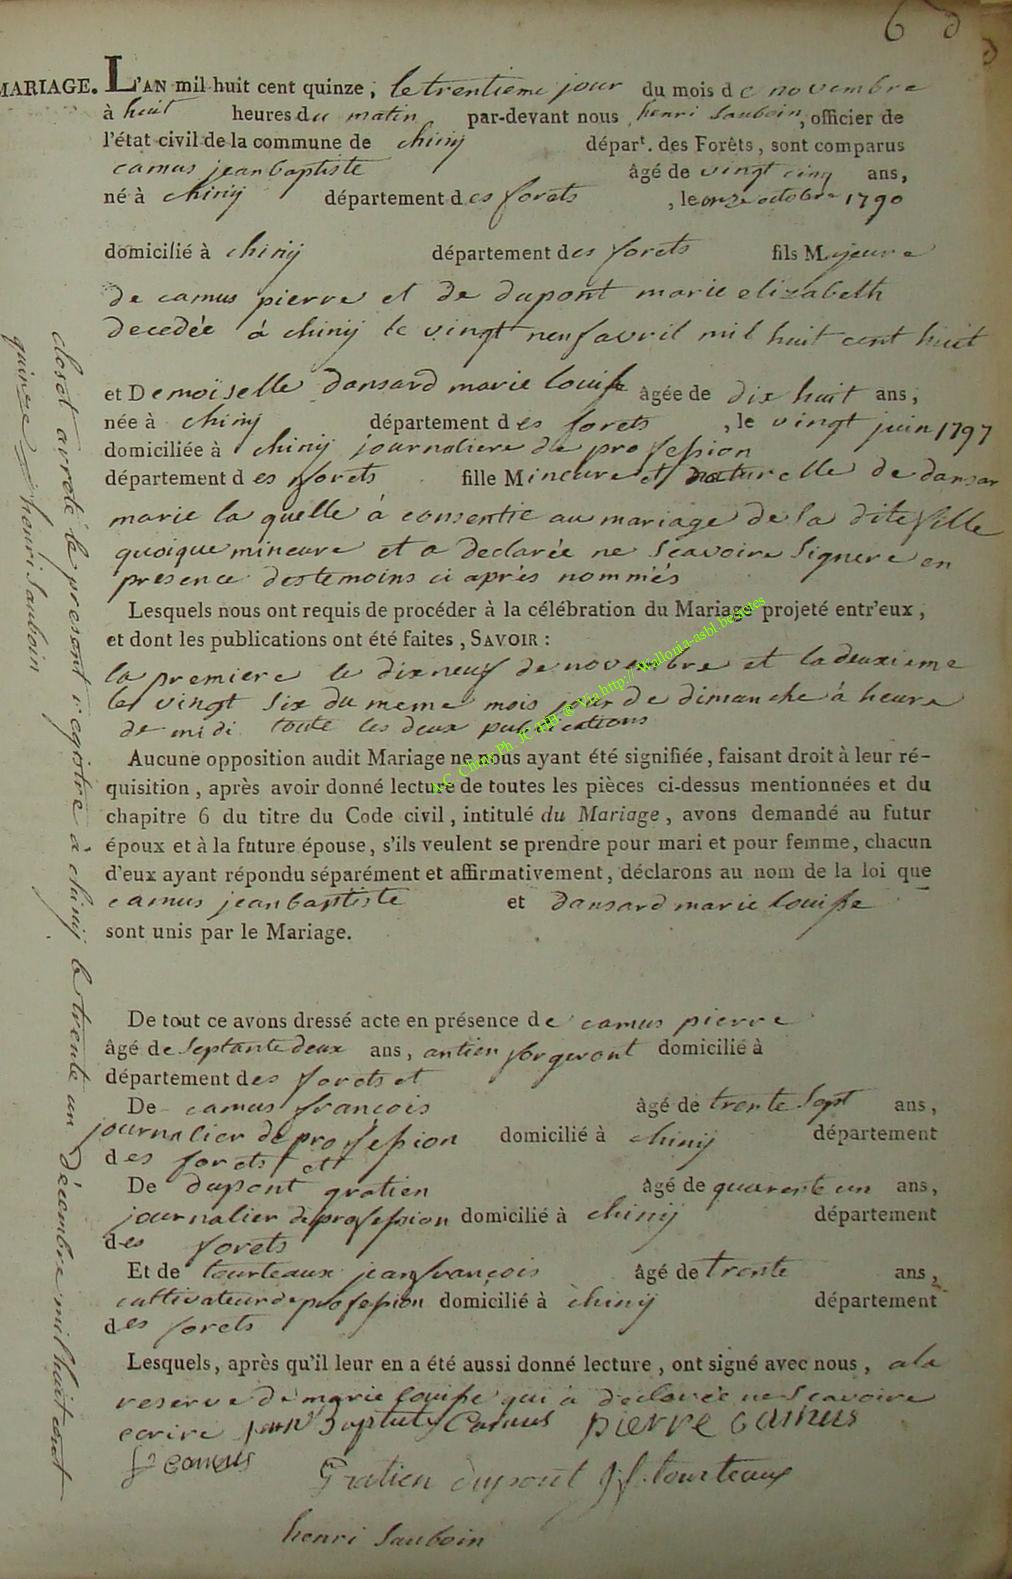 6
MARIAGE. L'AN mil huit cent quinze, le trentieme jour du mois de novembre
à huit heures du matin par-devant nous henri Sauboin, officier de
l'état civil de la commune de chinij départ. des Forêts, sont comparus
camus jean baptiste âgé de vingt cinq ans,
né à chinij département des forets, le onze octobre 1790
domicilié à chinij département des forets fils Majeure
de camus pierre et de dupont marie elizabeth
decedée à chinij le vingt neuf avril mil huit cent huit
et Demoiselle dansard marie louise âgée de dix huit ans,
née à chinij département des forets, le vingt juin 1797
domiciliée à chinij journaliere de profession
département des forets fille Mineure et naturelle de dansar
marie la quelle à consentie au mariage de la dite fille
quoique mineure et a declarée ne scavoire signere en
presence des temoins ci après nommés
Lesquels nous ont requis de procéder à la célébration du Mariage projeté entr'eux,
et dont les publications ont été faites, SAVOIR :
la premiere le dixneuf de novembre et la deuxieme
le vingt six du meme mois jour de dimanche à heure
de midi toute les deux publications
Aucune opposition audit Mariage ne nous ayant été signifiée, faisant droit à leur ré-
quisition, après avoir donné lecture de toutes les pièces ci-dessus mentionnées et du
chapitre 6 du titre du Code civil, intitulé du Mariage, avons demandé au futur
époux et à la future épouse, s'ils veulent se prendre pour mari et pour femme, chacun
d'eux ayant répondu séparément et affirmativement, déclarons au nom de la loi que
camus jean baptiste et dansard marie louise
sont unis par le Mariage.
De tout ce avons dressé acte en présence de camus pierre
âgé de septante deux ans, antien forgeront domicilié à
département des forets et
De camus francois âgé de trente sept ans,
journalier de profession domicilié à chinij département
des forets ett
De dupont gratien âgé de quarente un ans,
journalier de profession domicilié à chinij département
des forets
Et de tourteaux jean françois âgé de trente ans,
cultivateur de profession domicilié à chinij département
des forets
Lesquels, après qu'il leur en a été aussi donné lecture, ont signé avec nous, a la
reserve de marie louise qui à declarée ne scavoire
ecrire jean Baptiste Camus pierre camus
fs camus Gratien dupont J f. tourteaux
henri Sauboin
closet arreté le present registre à chinij le trente un décembre mil huit cent
quinze henri Sauboin
A.C. Chiny Ph. JC AHB @ Via http://Wallonia-asbl.be/etes